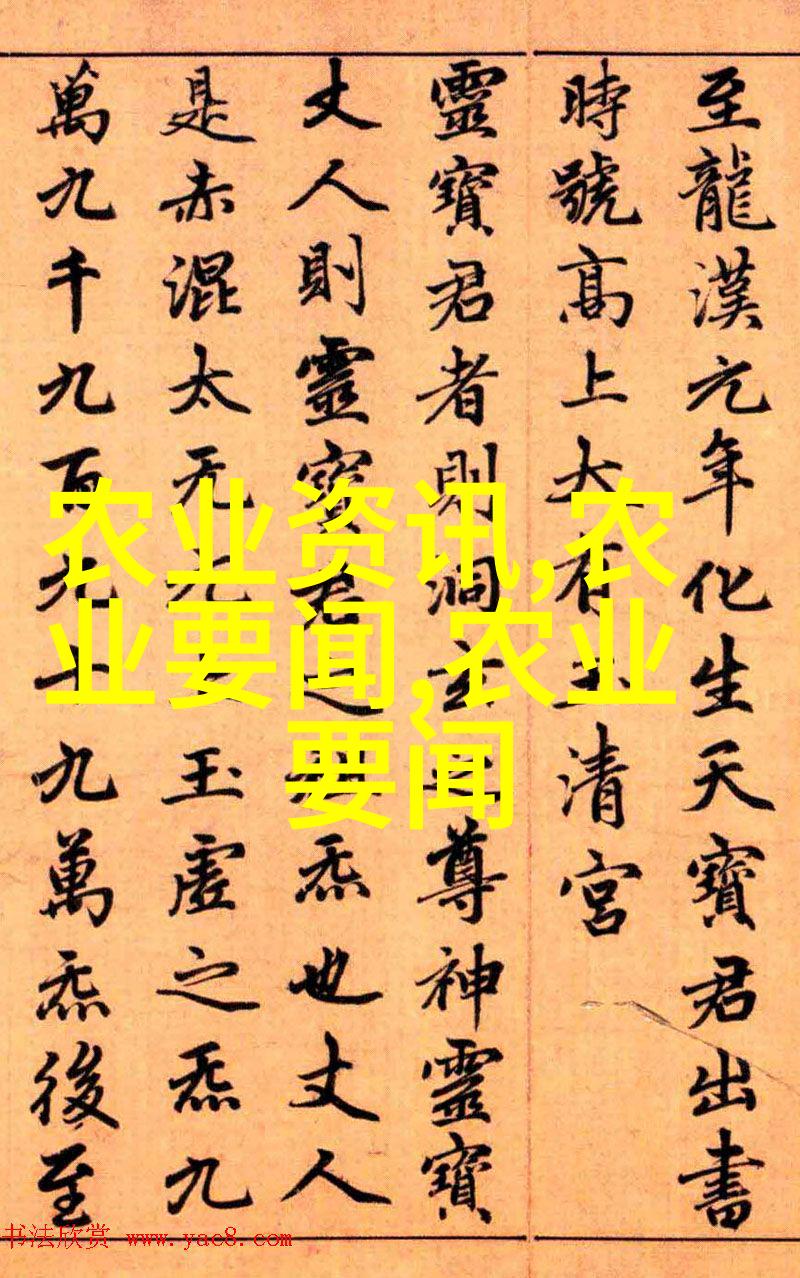 至龍漢元年化生天寶君出書
時號高上大有清宮
靈寶君者則洞玄之尊神靈寶
丈人則靈寶君之炁也丈人
是赤混太无元玉虛之炁九
萬九千九百九十九萬炁後至
农业资讯,农
业要闻,农业
要闻
书法欣赏 www.yac8.com